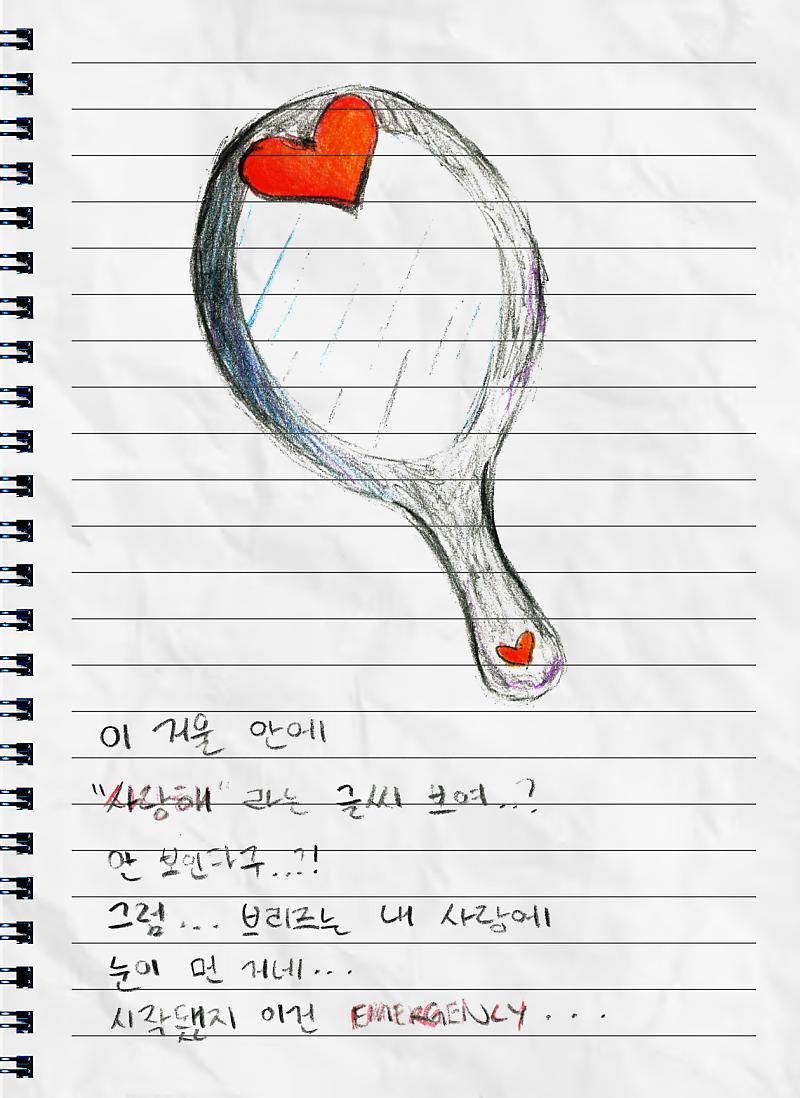 이 거울 안에
"사랑해" 라는 글씨 보여..?
안 보인다구...?!
그럼... 브리즈는 내 사랑에
눈이 먼 거네...
시작됐지 이건 EMERGENCY...